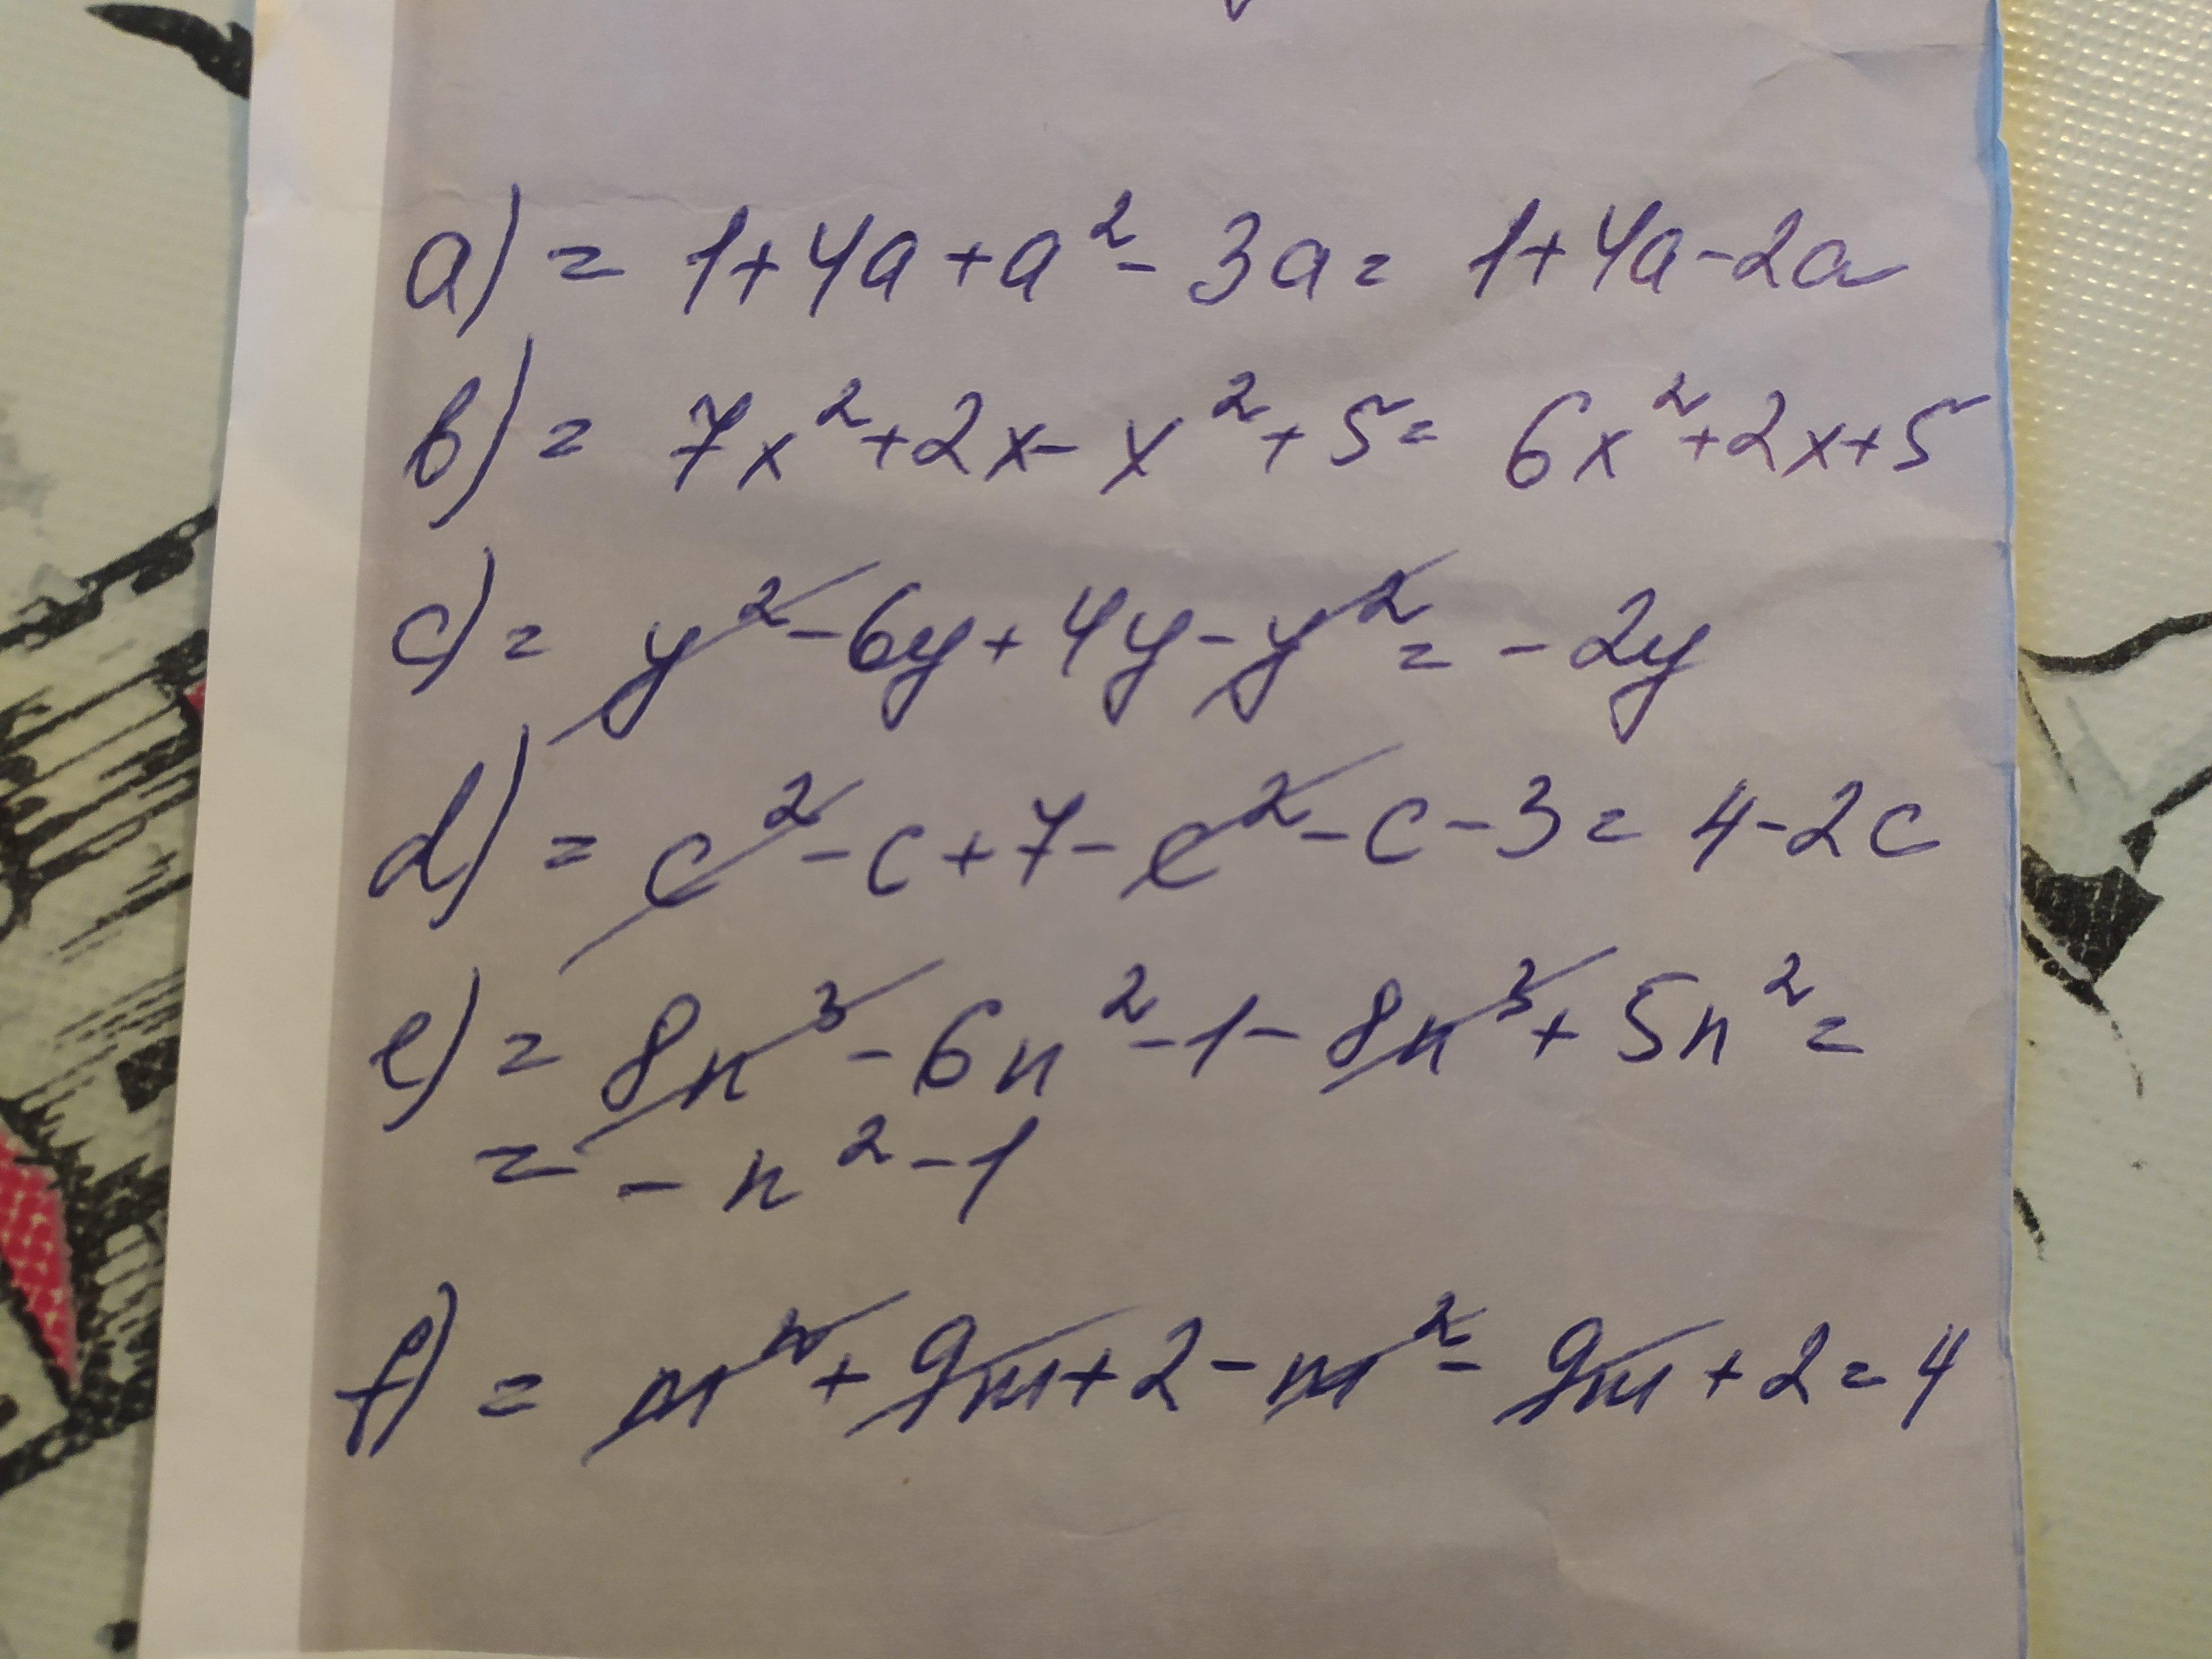 a) = 1+4a+a²-3a= 1+4a-2a
b) = 7x²+2x-x²+5= 6x²+2x+5
c) = y²-6y+4y-y²= -2y
d) = c²-c+7-c²-c-3= 4-2c
e) = 8n³-6n²-1-8n³+5n²=
= -n²-1
f) = m²+9m+2-m²-9m+2=4